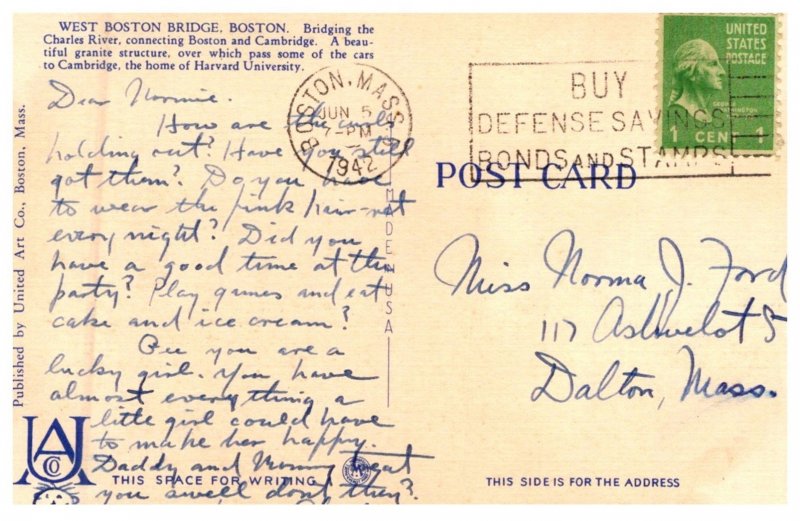 WEST BOSTON BRIDGE, BOSTON. Bridging the
Charles River, connecting Boston and Cambridge. A beau-
tiful granite structure, over which pass some of the cars
to Cambridge, the home of Harvard University.
Dear Normie.
How are the curls
holding out? Have you still
got them? Do you have
to wear the pink hair-net
every night? Did you
have a good time at the
party? Play games and eat
cake and ice cream?
Gee you are a
lucky girl. You have
almost everything a
little girl could have
to make her happy.
Daddy and Mommy treat
you swell don't they?
THIS SPACE FOR WRITING
Published by United Art Co., Boston, Mass.
UA Co
MADE IN USA
BOSTON, MASS.
JUN 5
7-PM
1942
BUY
DEFENSE SAVINGS
BONDS AND STAMPS
UNITED
STATES
POSTAGE
GEORGE WASHINGTON
1 CENT 1
POST CARD
Miss Norma J. Ford
117 Ashuelot S
Dalton, Mass.
THIS SIDE IS FOR THE ADDRESS